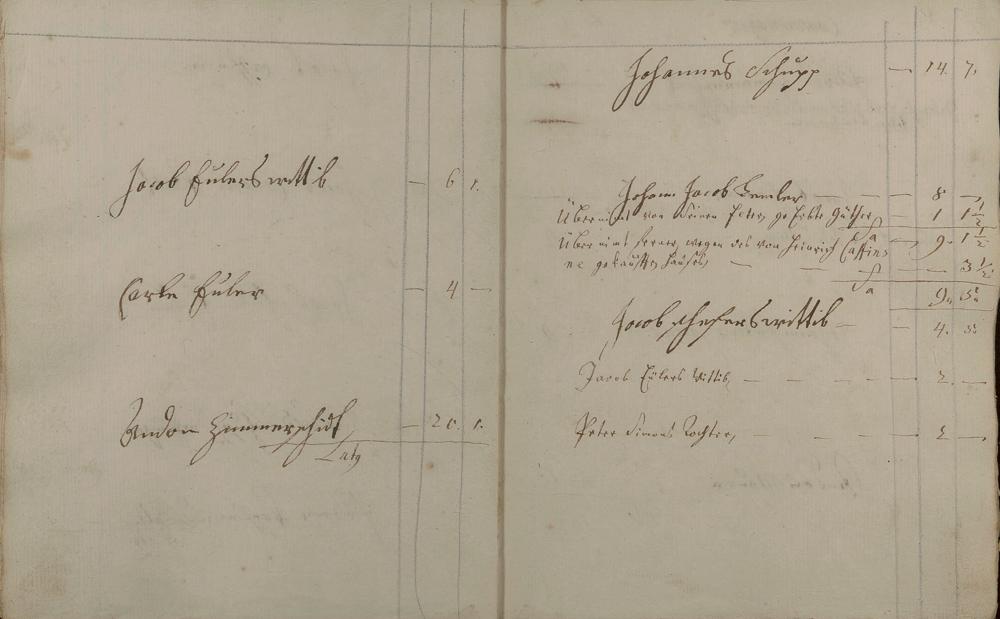 Jacob Eulers wittib — 6 1.
Carle Euler — 4 —
Andon Zimmerschidt — 20. 1.
Latg
Johannes Schupp — 14. 7.
Johann Jacob Kemler — — — 8 —
Über nimt von Seinen Peter, ge Erbte Güther — 1 1 1/2
Sa 9. 1 1/2
Über nimt ferner, wegen des von Heinrich Caffin,
ne gekaufften Hauses, — — — 3 1/2
Sa 9. 5.
Jacob schefers wittib — — 4. 3.
Jacob Eülers Wittib, — — — — 2. —
Peter Simons Tochter, — — — — 2 —